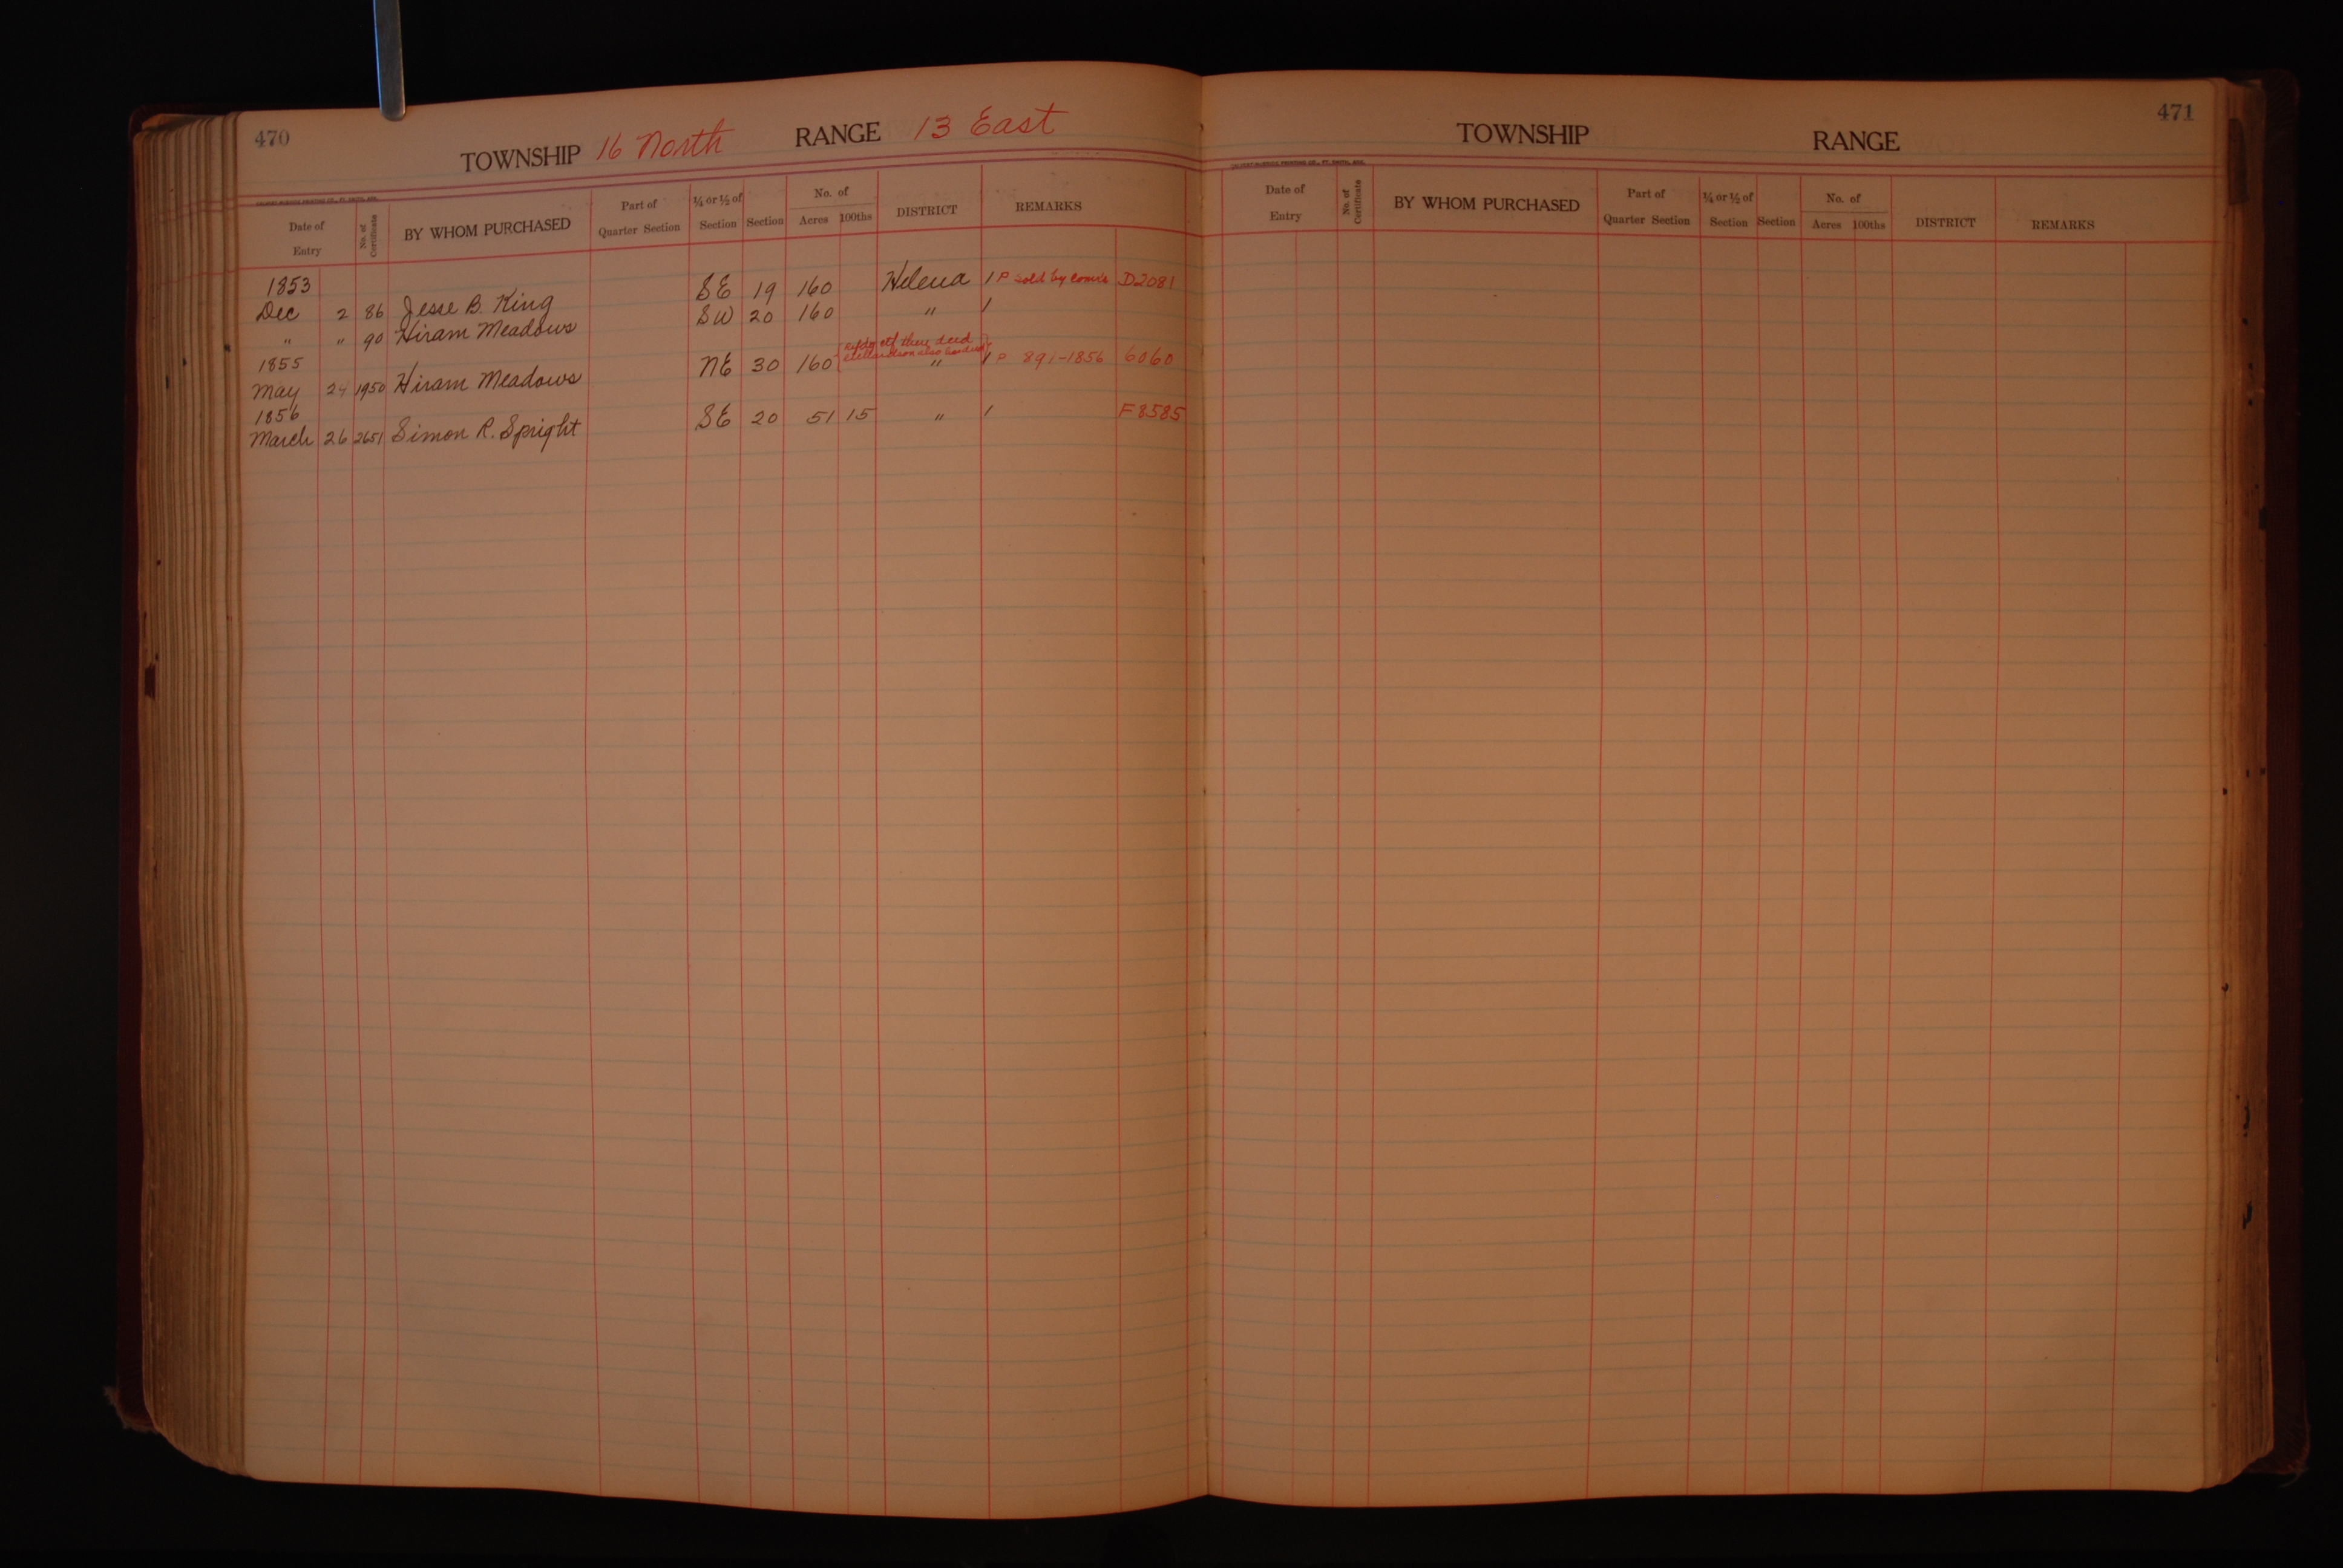 470
TOWNSHIP 16 North RANGE 13 East
Date of Entry No. of Certificate BY WHOM PURCHASED Part of Quarter Section ¼ or ½ of Section Section No. of Acres 100ths DISTRICT REMARKS
1853
Dec 2 86 Jesse B. King SE 19 160 Helena / P sold by com's D2081
" " 90 Hiram Meadows SW 20 160 " /
1855
May 24 1950 Hiram Meadows NE 30 160 " / P 891-1856 6060
1856
March 26 2651 Simon R. Spright SE 20 51 15 " / F8585
471
TOWNSHIP RANGE
Date of Entry No. of Certificate BY WHOM PURCHASED Part of Quarter Section ¼ or ½ of Section Section No. of Acres 100ths DISTRICT REMARKS